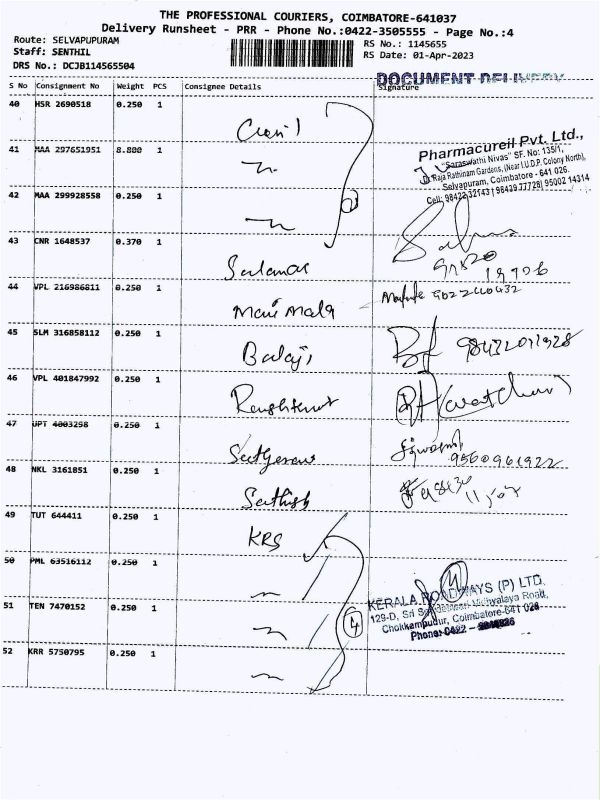 THE PROFESSIONAL COURIERS, COIMBATORE-641037
Delivery Runsheet - PRR - Phone No.:0422-3505555 - Page No.:4
Route: SELVAPUPURAM
RS No.: 1145655
Staff: SENTHIL
RS Date: 01-Apr-2023
DRS No.: DCJB114565504
DOCUMENT DELIVERY
S No Consignment No Weight PCS Consignee Details Signature
40 HSR 2690518 0.250 1
41 MAA 297651951 8.800 1
Pharmacureil Pvt. Ltd.,
"Saraswathi Nivas" SF. No: 135/1,
Raja Rathinam Gardens, (Near I.U.D.P. Colony North),
Selvapuram, Coimbatore - 641 026.
Cell: 98422 32143 | 98439 77728 | 95002 14314
42 MAA 299928558 0.250 1
43 CNR 1648537 0.370 1
44 VPL 216986811 0.250 1 Mani Mala
45 SLM 316858112 0.250 1 Balaji
46 VPL 401847992 0.250 1
47 JPT 4003298 0.250 1
9560961922
48 NKL 3161851 0.250 1 Sathish
49 TUT 644411 0.250 1 KRS
50 PML 63516112 0.250 1
KERALA ROADWAYS (P) LTD.
129-D, Sri Vidhyalaya Road,
Chokkampudur, Coimbatore-641 026
Phone: 0422 -
51 TEN 7470152 0.250 1
4
52 KRR 5750795 0.250 1